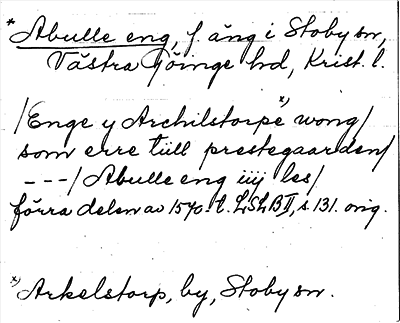 * Abulle eng, f. äng i Stoby sn,
Västra Göinge hd, Krist. l.
/Enge y Archilstorpe *) wong/
som erre tiill prestegaarden/
---/Abulle eng iiij les/
förra delen av 1570-t. LSLB II, s. 131. orig.
*) Arkelstorp, by, Stoby sn.